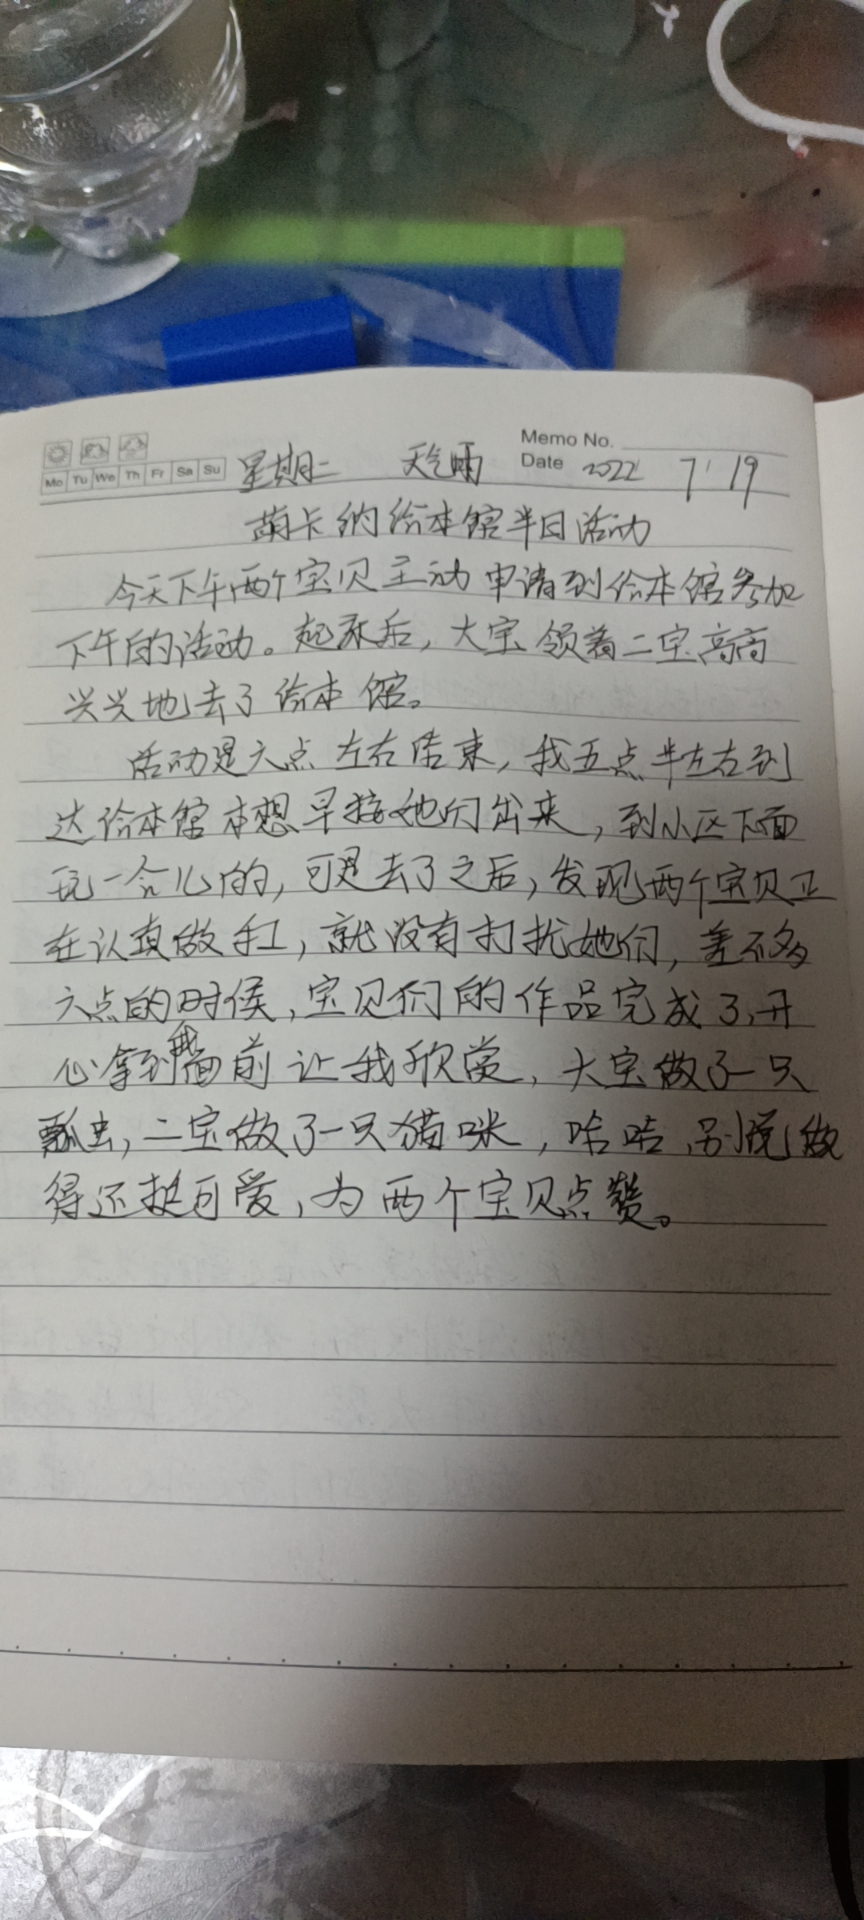 Memo No.
Mo Tu We Th Fr Sa Su 星期二 天气雨 Date 2022 7 19
萌卡纳绘本馆半日活动
今天下午两个宝贝主动申请到绘本馆参加
下午的活动。起床后，大宝领着二宝高高
兴兴地去了绘本馆。
活动是六点左右结束，我五点半左右到
达绘本馆本想早接她们出来，到小区下面
玩一会儿的，可是去了之后，发现两个宝贝正
在认真做手工，就没有打扰她们，差不多
六点的时侯，宝贝们的作品完成了，开
心拿到我面前让我欣赏，大宝做了一只
瓢虫，二宝做了一只猫咪，哈哈，别说做
得还挺可爱，为两个宝贝点赞。